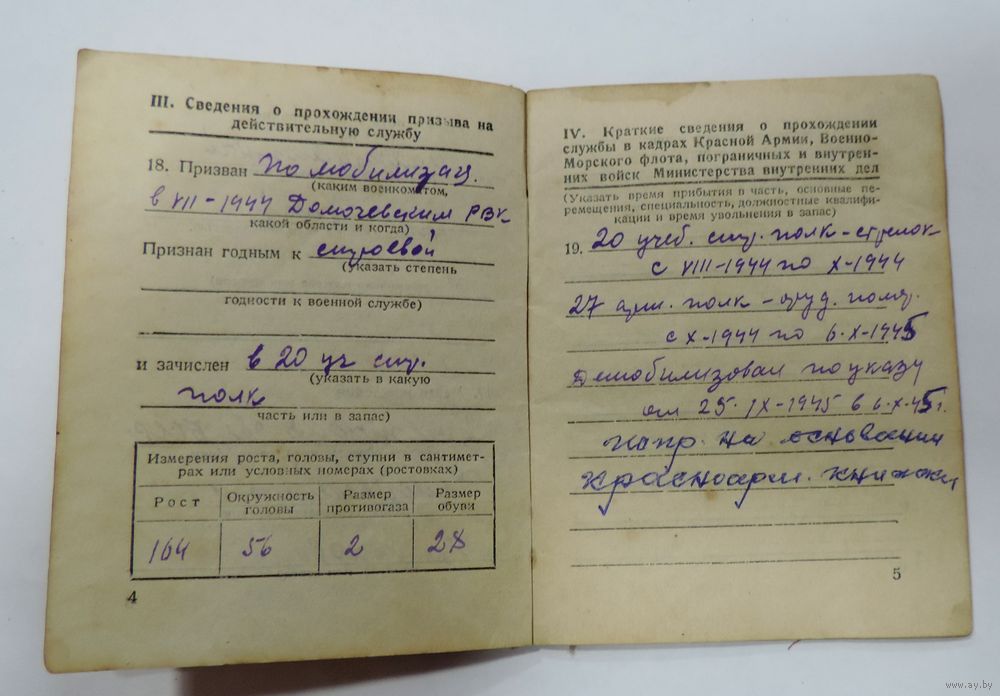 III. Сведения о прохождении призыва на
действительную службу
18. Призван по мобилизац.
(каким военкоматом,
в VII-1944 Домачевским РВК
какой области и когда)
Признан годным к строевой
(указать степень
годности к военной службе)
и зачислен в 20 уч стр.
(указать в какую
полк
часть или в запас)
Измерения роста, головы, ступни в сантимет-
рах или условных номерах (ростовках)
Рост Окружность головы Размер противогаза Размер обуви
164 56 2 28
4
IV. Краткие сведения о прохождении
службы в кадрах Красной Армии, Военно-
Морского флота, пограничных и внутрен-
них войск Министерства внутренних дел
(Указать время прибытия в часть, основные пе-
ремещения, специальность, должностные квалифи-
кации и время увольнения в запас)
19. 20 учеб. стр. полк-стрелок
с VIII-1944 по X-1944
27 арт. полк -
с X-1944 по 6.X-1945
Демобилизован по указу
от 25.IX-1945 в 6.X.45г.
на основании
Красноарм. книжки
5
www.ay.by